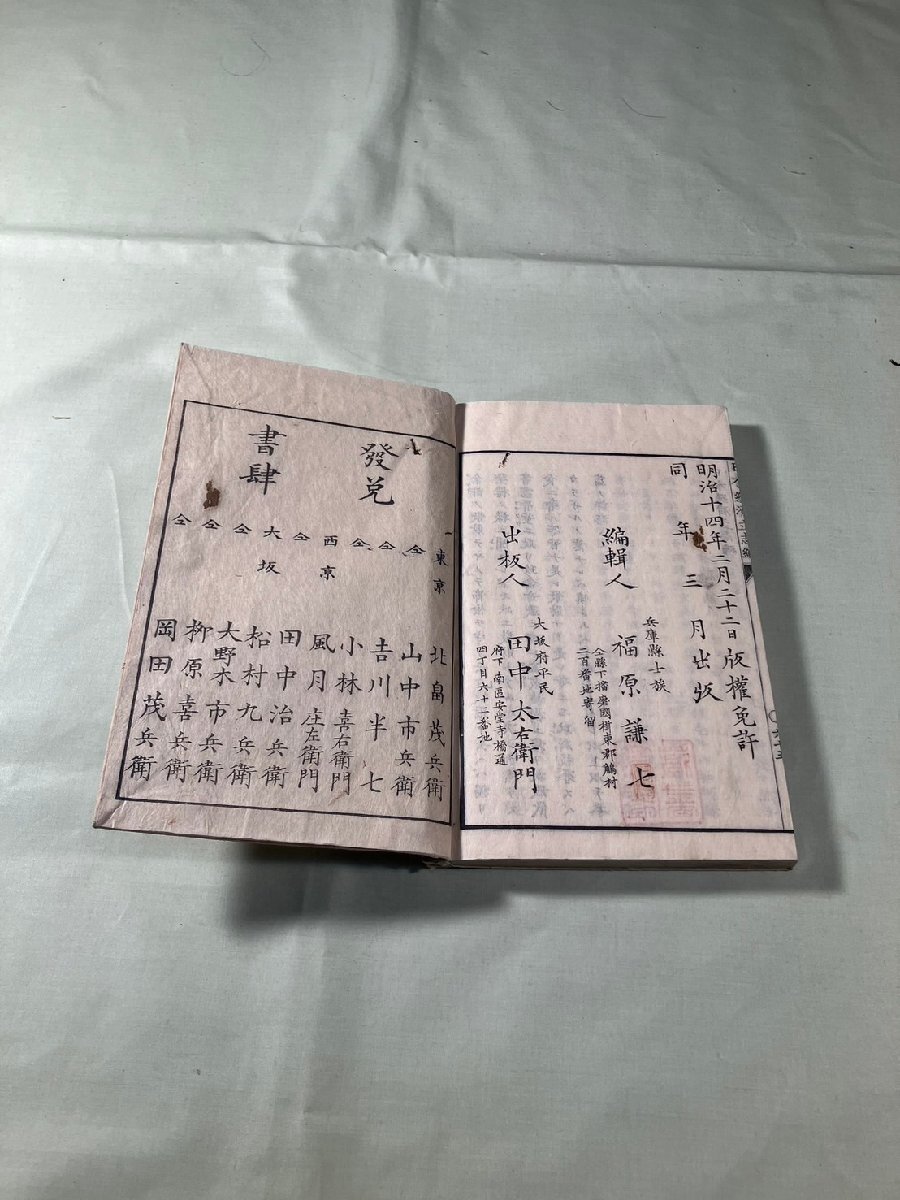 明治十四年二月二十二日版權免許
同年三月出版
兵庫縣士族
編輯人 福原謙七
仝縣下播磨國揖東郡觜村
二百番地寄留
大坂府平民
出板人 田中太右衛門
府下南區安堂寺橋通
四丁目六十二番地
發兌
書肆
東京 北畠茂兵衛
仝 山中市兵衛
仝 吉川半七
仝 小林喜右衛門
西京 風月庄左衛門
仝 田中治兵衛
大坂 松村九兵衛
仝 大野木市兵衛
仝 柳原喜兵衛
仝 岡田茂兵衛